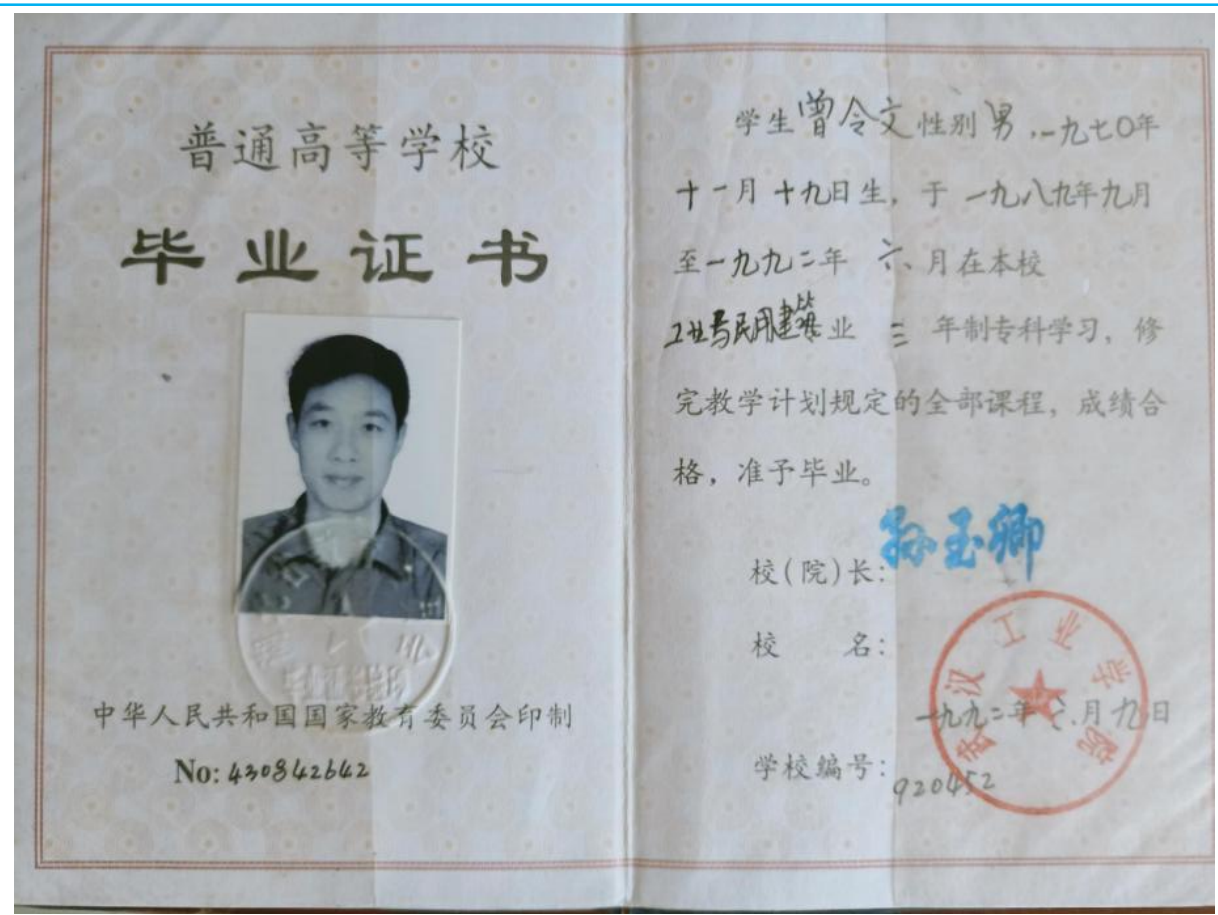 普通高等学校
毕业证书
中华人民共和国国家教育委员会印制
No: 430842642
学生曾令文性别男,一九七〇年
十一月十九日生,于一九八九年九月
至一九九二年六月在本校
工业与民用建筑专业三年制专科学习,修
完教学计划规定的全部课程,成绩合
格,准予毕业。
校(院)长:孙玉卿
校名:
武汉工业学院
一九九二年六月九日
学校编号:920452